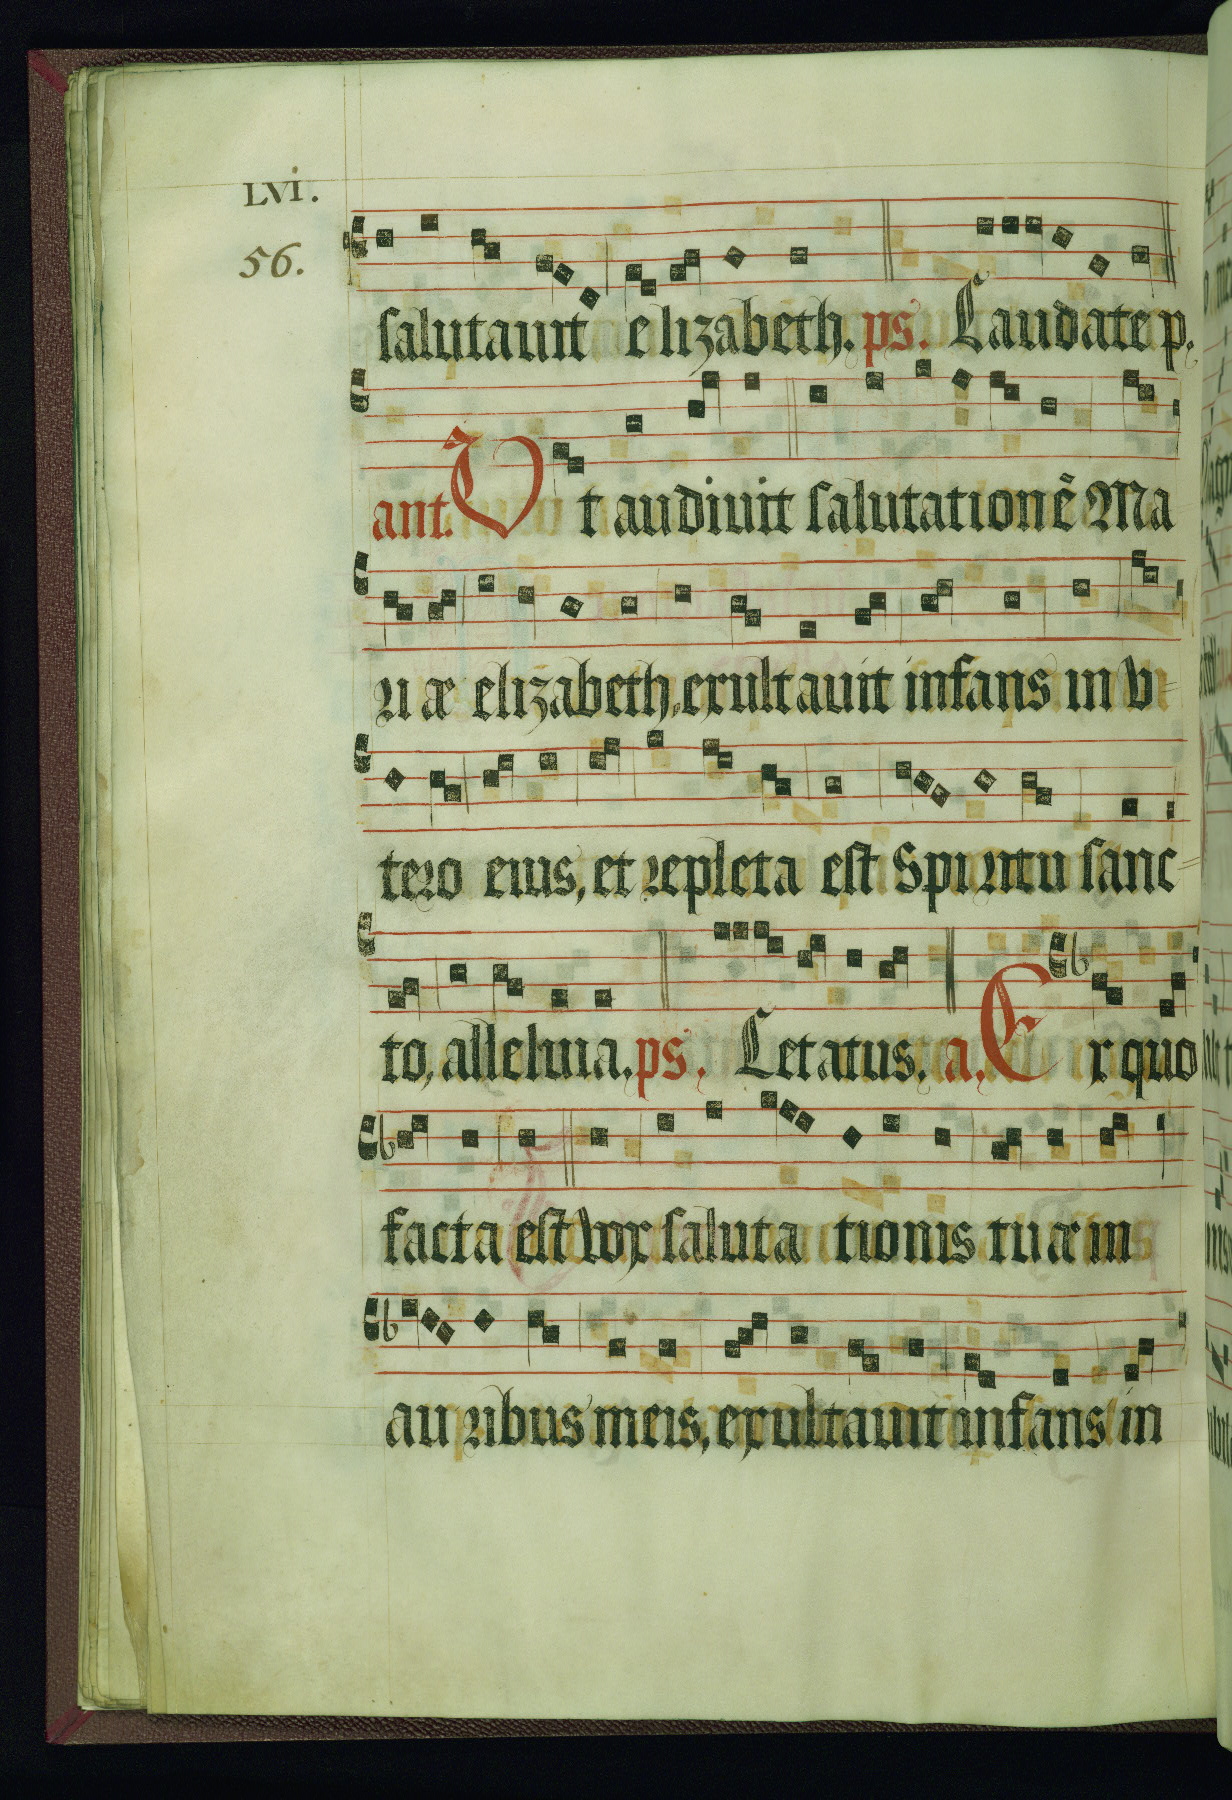 LVI.
56.
salutauit elizabeth. ps. Laudate p.
ant. Vt audiuit salutationē Ma
riæ elizabeth, exultauit infans in v=
tero eius, et repleta est Spiritu sanc=
to, alleluia. ps. Letatus. a. Ex quo
facta est vox salutationis tuæ in
auribus meis, exultauit infans in